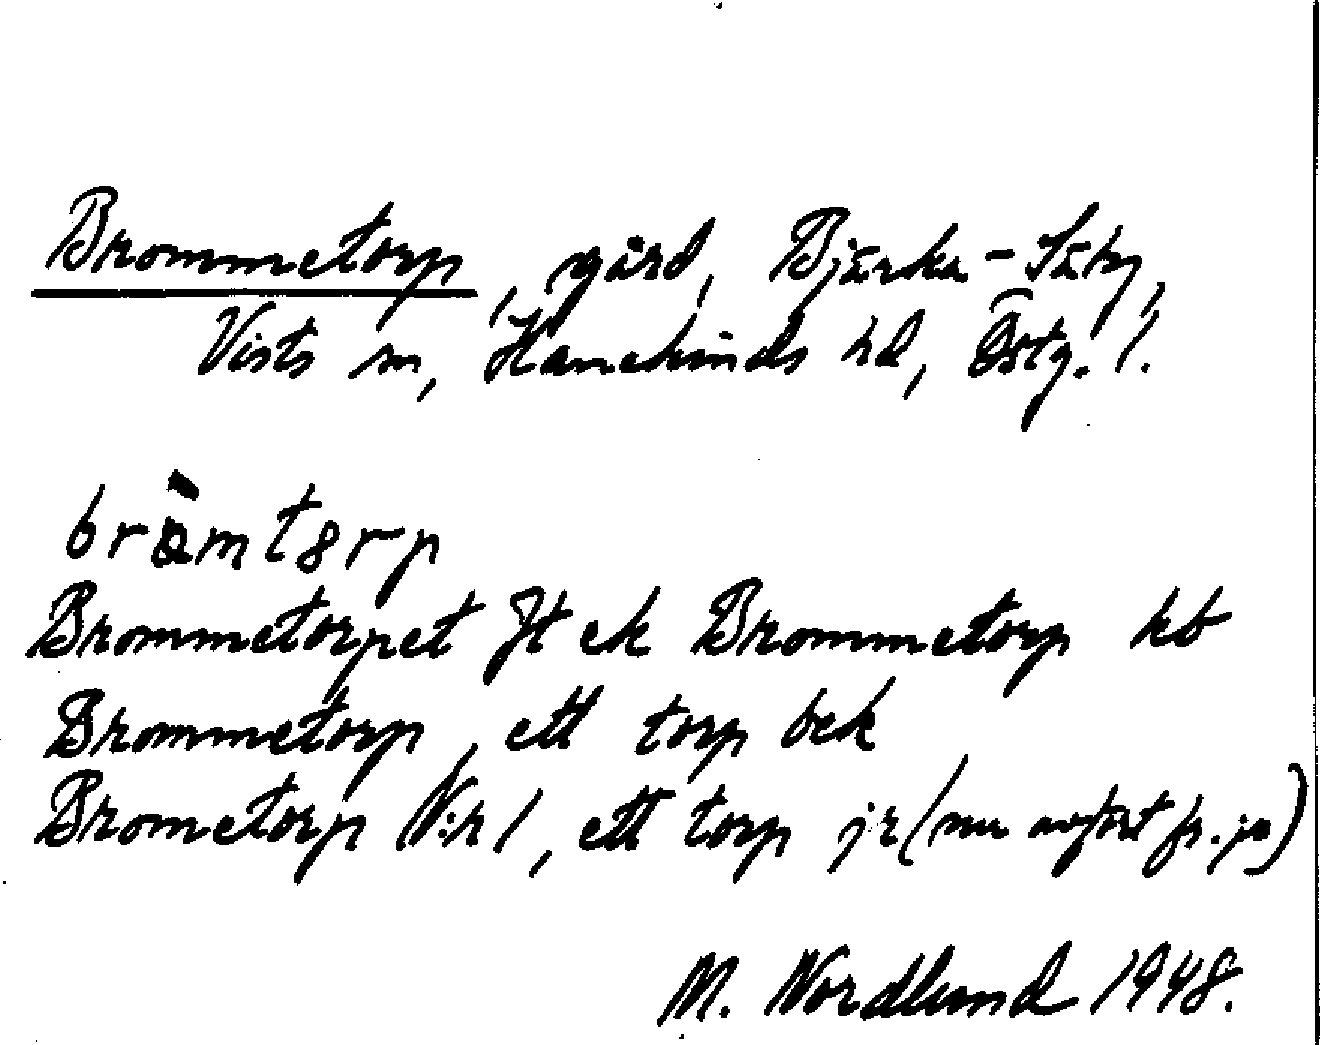 Brommetorp, gård, Bjärka-Säby,
Vists sn, Hanekinds hd, Östg. l.
bròmtɷrp
Brommetorpet Jt ek Brommetorp kb
Brommetorp, ett torp bek
Brometorp N:r 1, ett torp jr (nu avfört fr. jr)
M. Nordlund 1948.